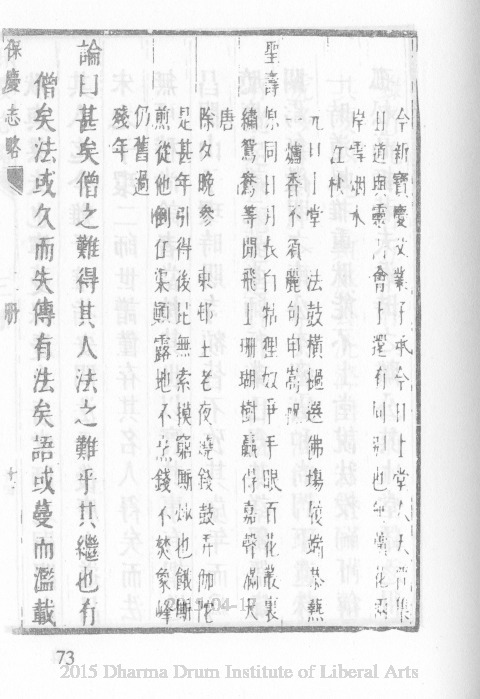 今新寶慶文業子承今日上堂人天普集
且道與靈山會上還有同別也無滿花兩
岸雪烟水一江秋
九日上堂 法鼓橫撾選佛場後端茶蕪
一爐香不須麗句申嵩祝
聖壽與同日月長白牯狸奴爭手眼百花叢裏
繡鴛鴦等閒飛上珊瑚樹贏得嘉聲滿大
唐
除夕晚參 東邨土老夜燒錢鼓弄伽陀
是甚年引得後昆無索摸窮斯炒也餓斯
煎從他倒仡杲顛露地不烹錢不焚象峰
仍舊過殘年
論曰甚矣僧之難得其人法之難乎其繼也有
僧矣法或久而失傳有法矣語或蔓而濫載
保慶志略 二册
73
2015 Dharma Drum Institute of Liberal Arts